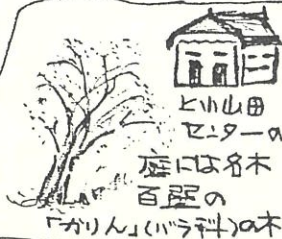 上小山田
センターの
庭には名木
百選の
「かりん」(バラ科)の木